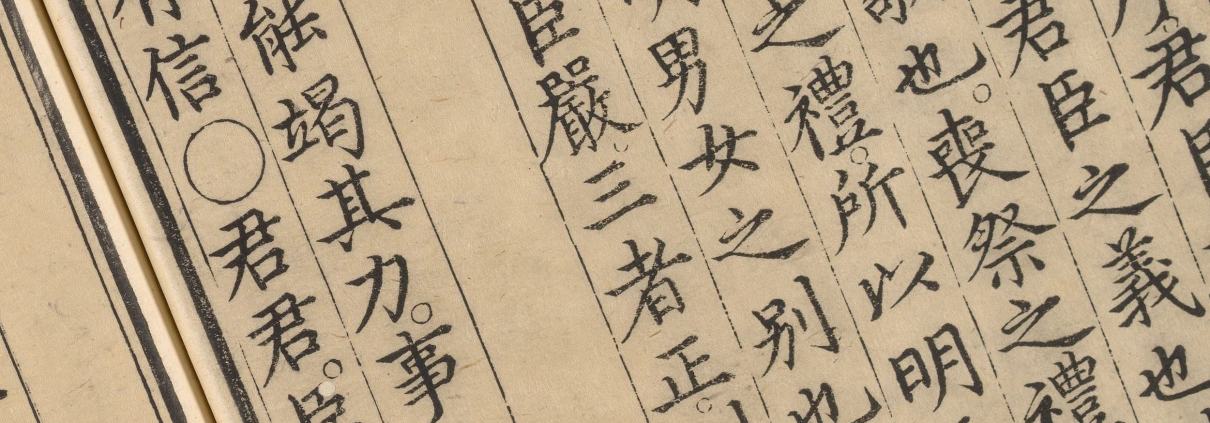 君
君臣之義也
也。喪祭之禮
之禮。所以明
男女之别也
臣嚴。三者正。
能竭其力。事
有信○君君。臣